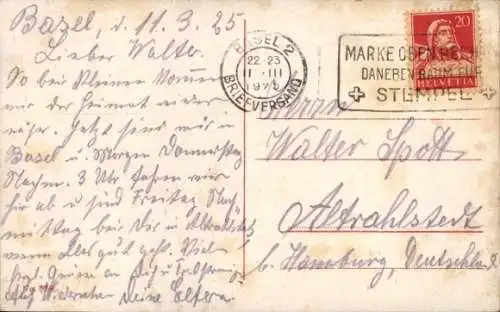 Basel, d. 11.3.25
Lieber Walter.
So bei Kleinem kommen
wir der Heimat wieder
näher. Jetzt sind wir in
Basel u. Morgen Donnerstag
Nachm. 3 Uhr fahren wir
hier ab u. sind Freitag Nach
mittag bei Dir in Altrahlstedt
wenn Alles gut geht. Viel
herzl. Grüsse an Dich u.
Auf Wiedersehn Deine Eltern.
BASEL 2
22-23
III
1925
BRIEFVERSAND
MARKE OBEN RECHTS
DANEBEN RAUM FÜR
STEMPEL
20
HELVETIA
Herrn
Walter Spott
Altrahlstedt
b. Hamburg, Deutschland